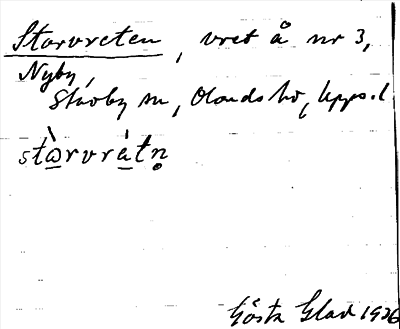 Storvreten, vret å nr 3,
Nyby,
Stavby sn, Olands hd, Upps. l
stò̱rvrá̱tṇ
Gösta Glad 1936